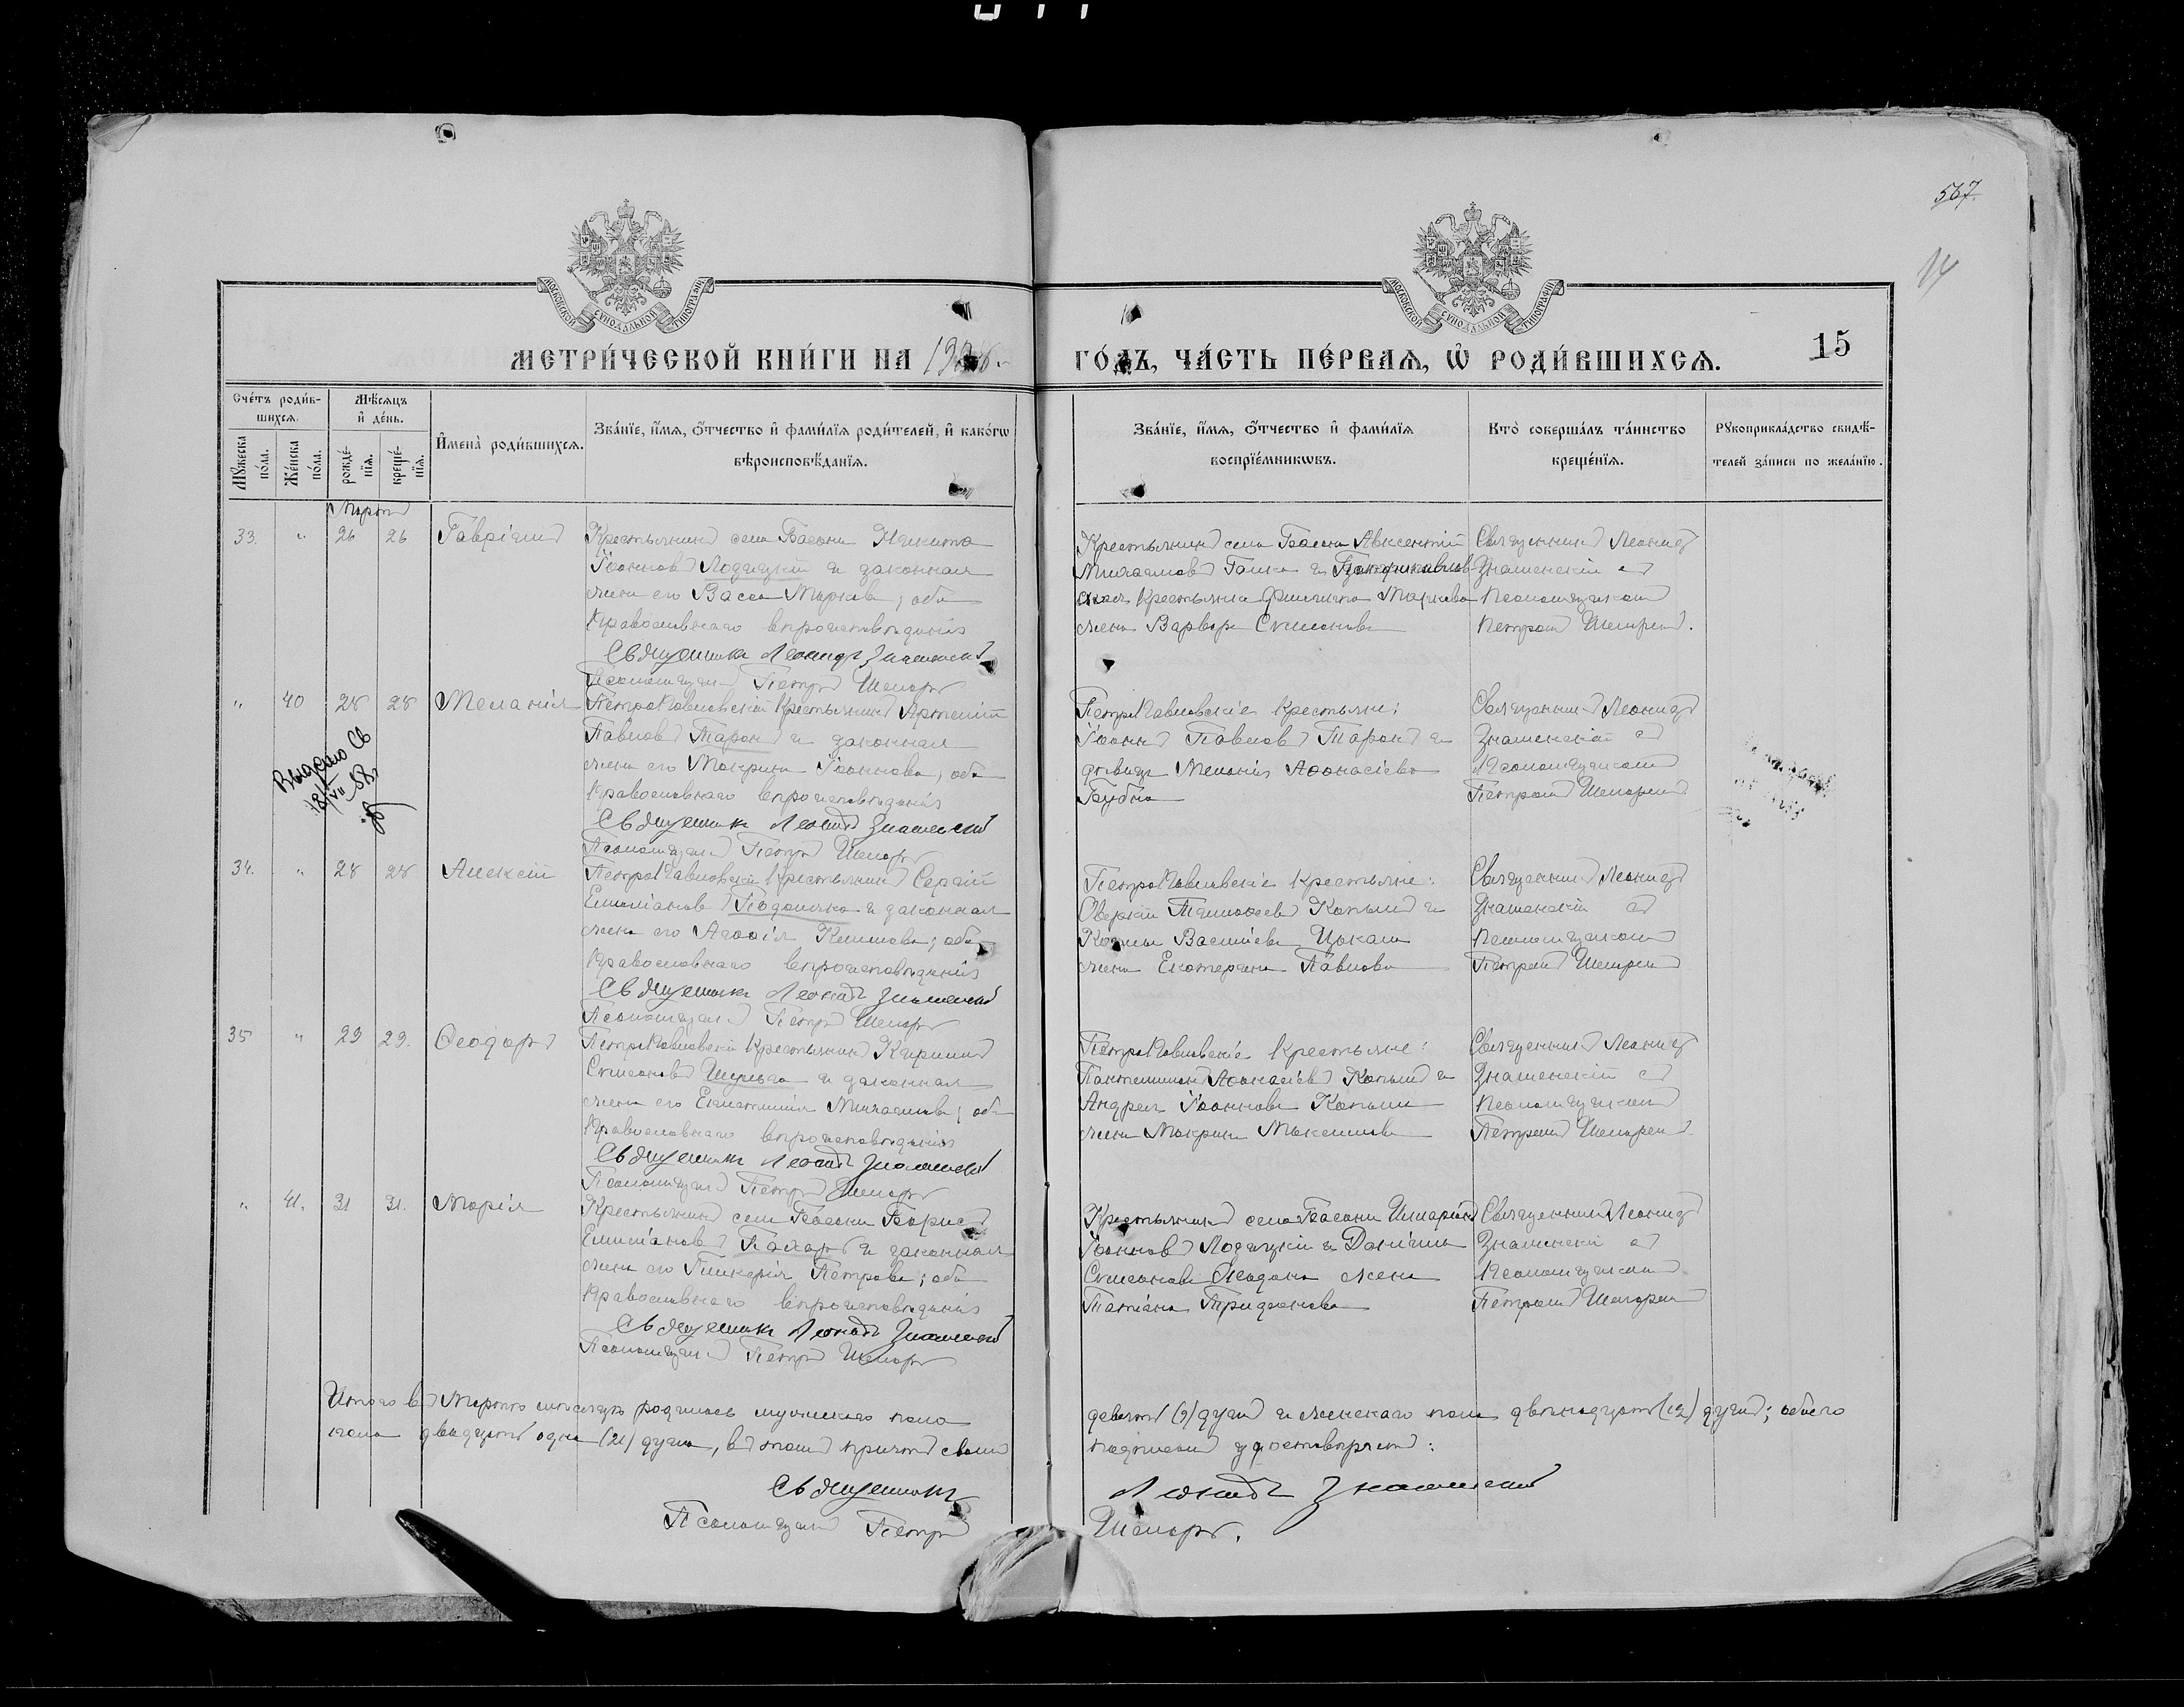 567
14
МОСКОВСКОЙ СѴНОДАЛЬНОЙ ТИПОГРАФІИ
МОСКОВСКОЙ СѴНОДАЛЬНОЙ ТИПОГРАФІИ
МЕТРИ́ЧЕСКОЙ КНИ́ГИ НА
ГО́ДЪ, ЧА́СТЬ ПЕ́РВАЯ, Ѡ҆ РОДИ́ВШИХСЯ.
15
Сче́тъ роди́в-
шихся.
Мѣ́сяцъ
и҆ де́нь.
Мꙋ́жеска
по́ла.
Же́нска
по́ла.
рожде́-
нїя.
креще́-
нїя.
И҆мена̀ роди́вшихся.
Зва́нїе, и҆́мя, ѻ҆́тчество и҆ фами́лїя роди́телей, и҆ како́гѡ
вѣроисповѣ́данїя.
Зва́нїе, и҆́мя, ѻ҆́тчество и҆ фами́лїя
воспрїе́мникѡвъ.
Кто̀ соверша́лъ та́инство
креще́нїя.
Рꙋкоприкла́дство свидѣ́-
телей за́писи по жела́нїю.
Мартъ
33. " 26 26 Гавріилъ
Крестьянинъ села Басани Никита
Іоанновъ Лодзицкій и законная
жена его Васса Маркова; оба
Православнаго вѣроисповѣданія
Священникъ Леонидъ Знаменскій
Псаломщикъ Петръ Шепарь
Крестьянинъ села Басани Авксентій
Михаиловъ Ганжа и
крестьянина Филиппа Маркова
жена Варвара Симеонова
Священникъ Леонидъ
Знаменскій съ
Псаломщикомъ
Петромъ Шепаремъ.
" 40 28 28 Меланія
ПетроПавловскій Крестьянинъ Артемій
Павловъ Таранъ и законная
жена его Макрина Іоаннова; оба
Православнаго вѣроисповѣданія
Священникъ Леонидъ Знаменскій
Псаломщикъ Петръ Шепарь
ПетроПавловскіе крестьяне:
Іоаннъ Павловъ Таранъ и
дѣвица Меланія Аѳанасіева
Священникъ Леонидъ
Знаменскій съ
Псаломщикомъ
Петромъ Шепаремъ
Выдано св
18/VII 58 г
34. " 28 28 Алексій
ПетроПавловскій Крестьянинъ Сергій
Емиліановъ и законная
жена его Агаѳія Климова; оба
Православнаго вѣроисповѣданія
Священникъ Леонидъ Знаменскій
Псаломщикъ Петръ Шепарь
ПетроПавловскіе Крестьяне:
Аверкій Тимоѳеевъ Капылъ и
Косьмы Василіева Цыкала
жена Екатерина Павлова
Священникъ Леонидъ
Знаменскій съ
Псаломщикомъ
Петромъ Шепаремъ
35 " 29 29. Ѳеодоръ
ПетроПавловскій Крестьянинъ Кириллъ
Симеоновъ Шульга и законная
жена его Михаилова; оба
Православнаго вѣроисповѣданія
Священникъ Леонидъ Знаменскій
Псаломщикъ Петръ Шепарь
ПетроПавловскіе Крестьяне:
Пантелиимонъ Аѳанасіевъ Капылъ и
Андрея Іоаннова Капыла
жена Макрина Максимова
Священникъ Леонидъ
Знаменскій съ
Псаломщикомъ
Петромъ Шепаремъ
" 41. 31 31. Марія
Крестьянинъ села Басани Борисъ
Емиліановъ Пахарь и законная
жена его Гликерія Петрова; оба
Православнаго вѣроисповѣданія
Священникъ Леонидъ Знаменскій
Псаломщикъ Петръ Шепарь
Крестьянинъ села Басани Иларіонъ
Іоанновъ Лодзицкій и Даніила
Симеонова жена
Татіана
Священникъ Леонидъ
Знаменскій съ
Псаломщикомъ
Петромъ Шепаремъ
Итого въ Мартѣ мѣсяцѣ родилось мужескаго пола
девять (9) душъ и женскаго пола двѣнадцать (12) душъ; обоего
пола двадцать одна (21) душа, въ томъ причтъ своимъ
подписомъ удостовѣряетъ:
Священникъ Леонидъ Знаменскій
Псаломщикъ Петръ Шепарь.